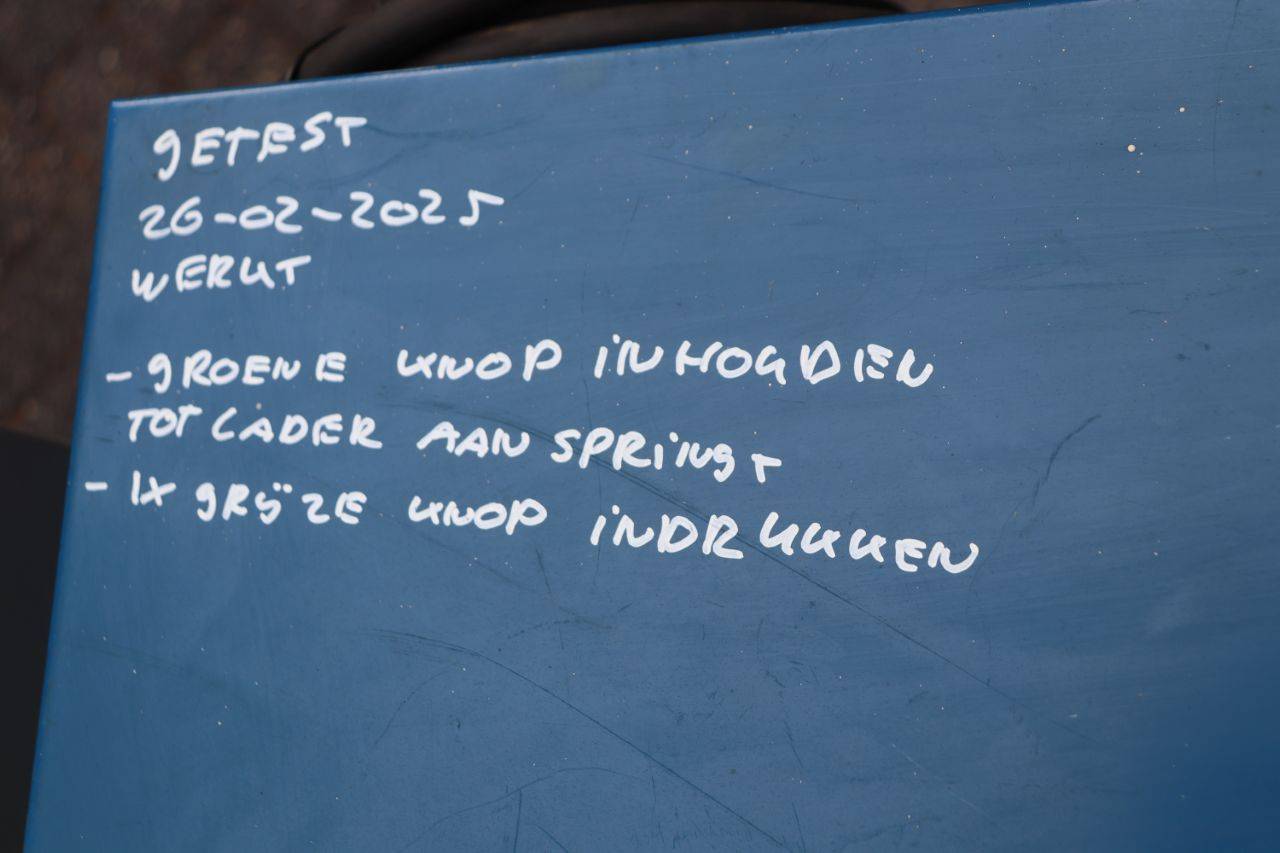 GETEST
26-02-2025
WERKT
- GROENE KNOP INHOUDEN
TOT LADER AAN SPRINGT
- 1X GRIJZE KNOP INDRUKKEN